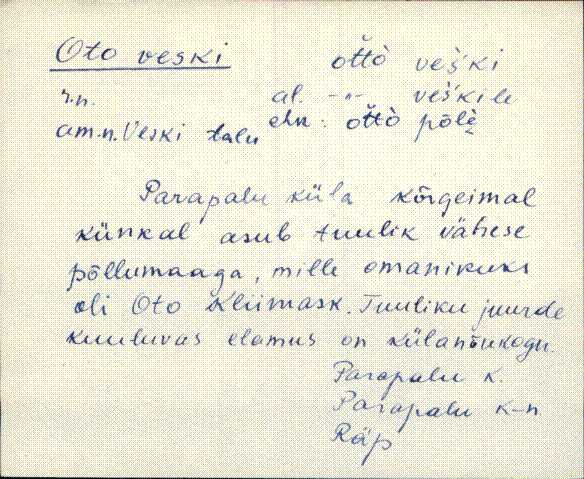 Oto veski      ŏttò veśki
r.n.      al. -"- veśkile
am.n. Veski talu      ehk: ŏttò põlè
Parapalu küla kõrgeimal
künkal asub tuulik vähese
põllumaaga, mille omanikuks
oli Oto Kliimask. Tuuliku juurde
kuuluvas elamus on külanõukogu.
Parapalu k.
Parapalu k-n
Räp